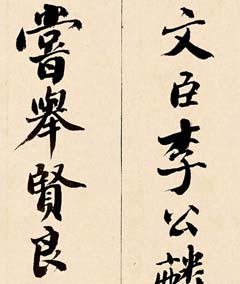 文臣李公
嘗舉賢良